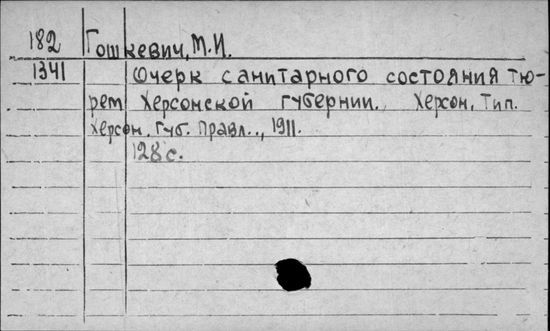 182 Гошкевич, М.И.
1341 Очерк санитарного состояния тю-
рем Херсонской губернии. Херсон, Тип.
Херсон. Губ. Правл.., 1911.
128 с.